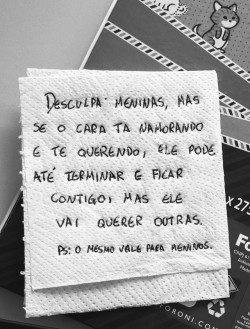 DESCULPA MENINAS, MAS
SE O CARA TA NAMORANDO
E TE QUERENDO, ELE PODE
ATÉ TERMINAR E FICAR
CONTIGO, MAS ELE
VAI QUERER OUTRAS.
PS: O MESMO VALE PARA MENINOS.